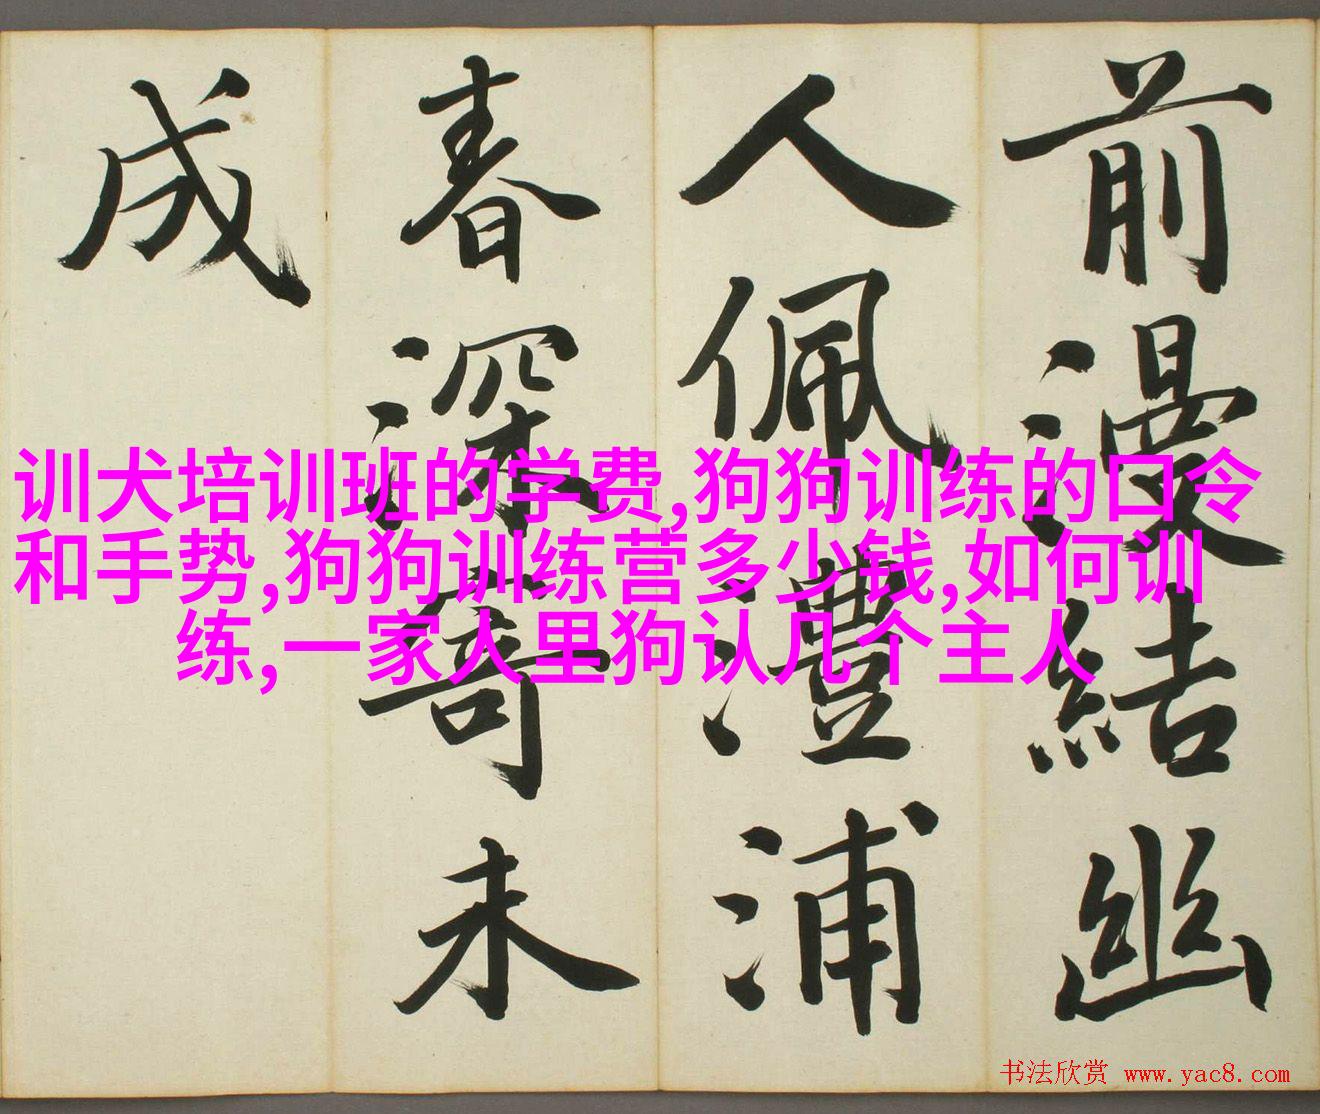 前漫結幽
人佩澧浦
春深寄未
成
训犬培训班的学费,狗狗训练的口令
和手势,狗狗训练营多少钱,如何训
练,一家人里狗认几个主人
书法欣赏 www.yac8.com